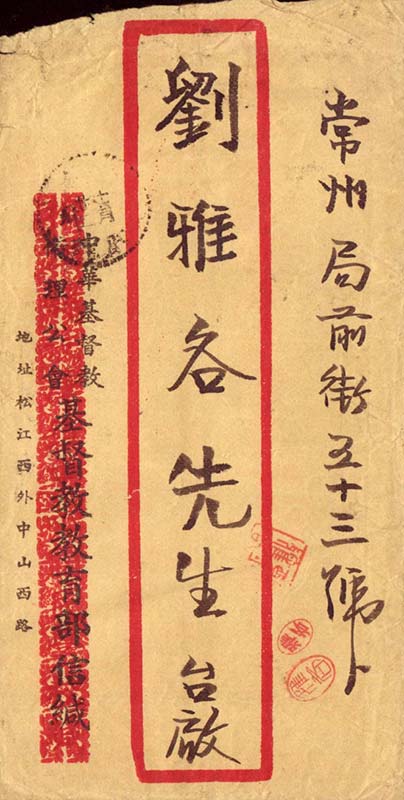 常州局前街五十三號
劉雅各先生 台啟
中華基督教
衛理公會
基督教教育部信緘
地址松江西外中山西路